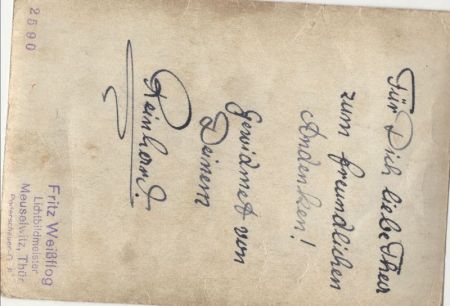 Für Dich liebe Thea
zum freundlichen
Andenken!
Gewidmet von
Deinem
Reinhard!
Fritz Weißflog
Lichtbildmeister
Meuselwitz, Thür.
2590